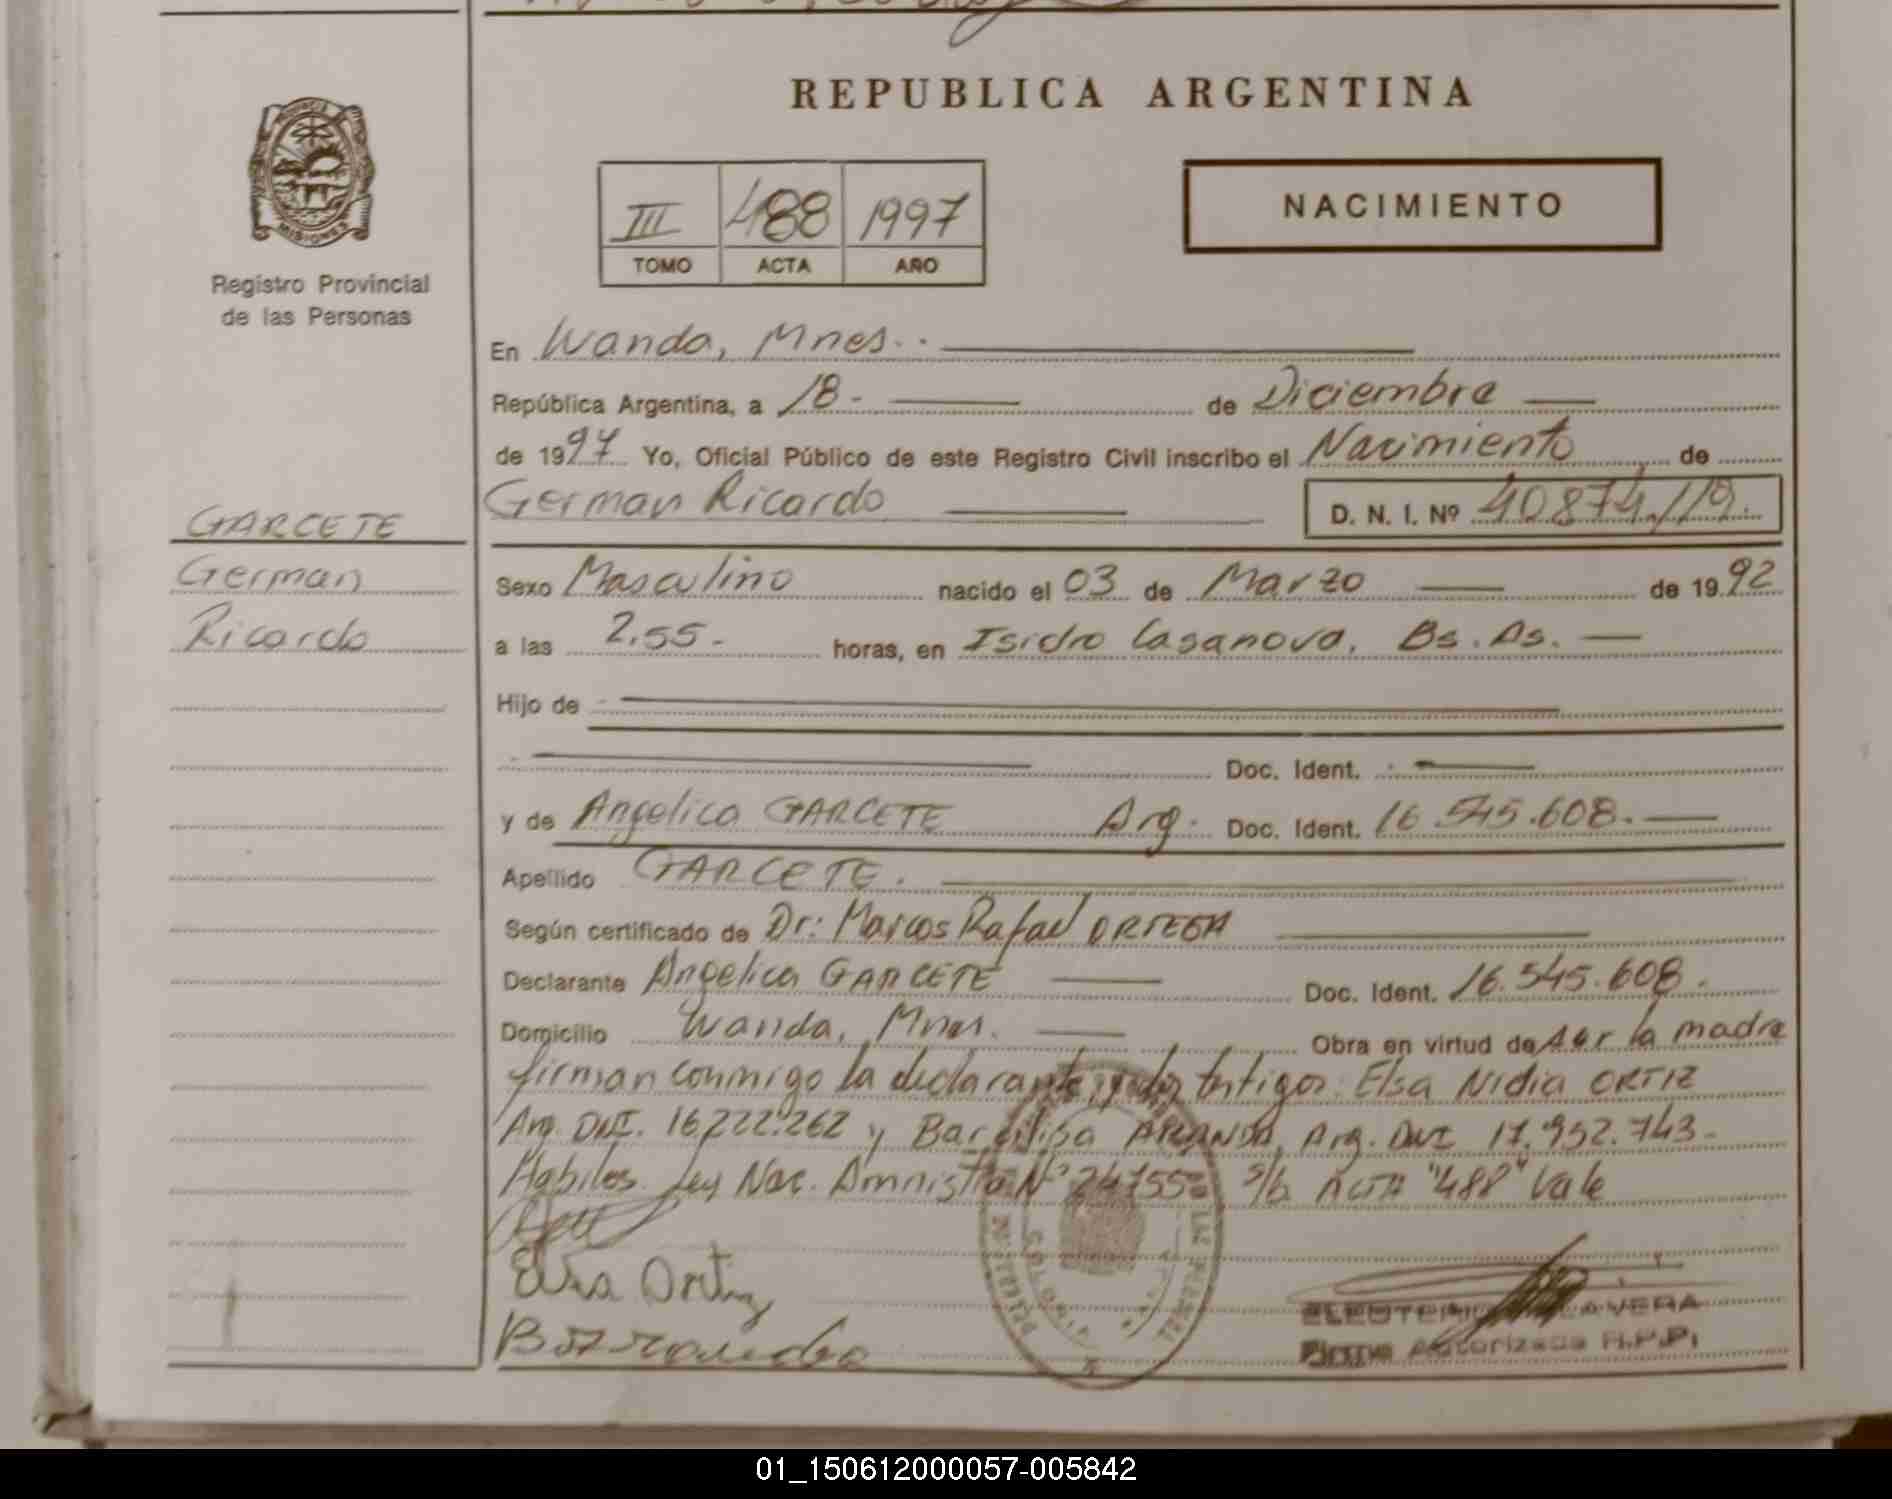 REPUBLICA ARGENTINA
PROVINCIA
MISIONES
Registro Provincial
de las Personas
III 488 1997
TOMO ACTA AÑO
NACIMIENTO
En Wanda, Mnes.
República Argentina, a 18.- de Diciembre
de 1997 Yo, Oficial Público de este Registro Civil inscribo el Nacimiento de
German Ricardo D. N. I. Nº 40874.119.
GARCETE
German
Ricardo
Sexo Masculino nacido el 03 de Marzo de 1992
a las 2.55.- horas, en Isidro Casanova, Bs. As.
Hijo de
Doc. Ident.
y de Angelica GARCETE Arg. Doc. Ident. 16.545.608.-
Apellido GARCETE.
Según certificado de Dr: Marcos Rafael ORTEGA
Declarante Angelica GARCETE Doc. Ident. 16.545.608.
Domicilio Wanda, Mnes. Obra en virtud de ser la madre
firman conmigo la declarante y dos testigos: Elsa Nidia ORTIZ
Arg. DNI. 16.222.262 y Arg. DNI 17.952.743-
Habiles. Ley Nac. Amnistia Nº 24755 s/b ACTA "488" Vale
Elsa Ortiz
ELEUTERIO
Firma Autorizada R.P.P.
01_150612000057-005842